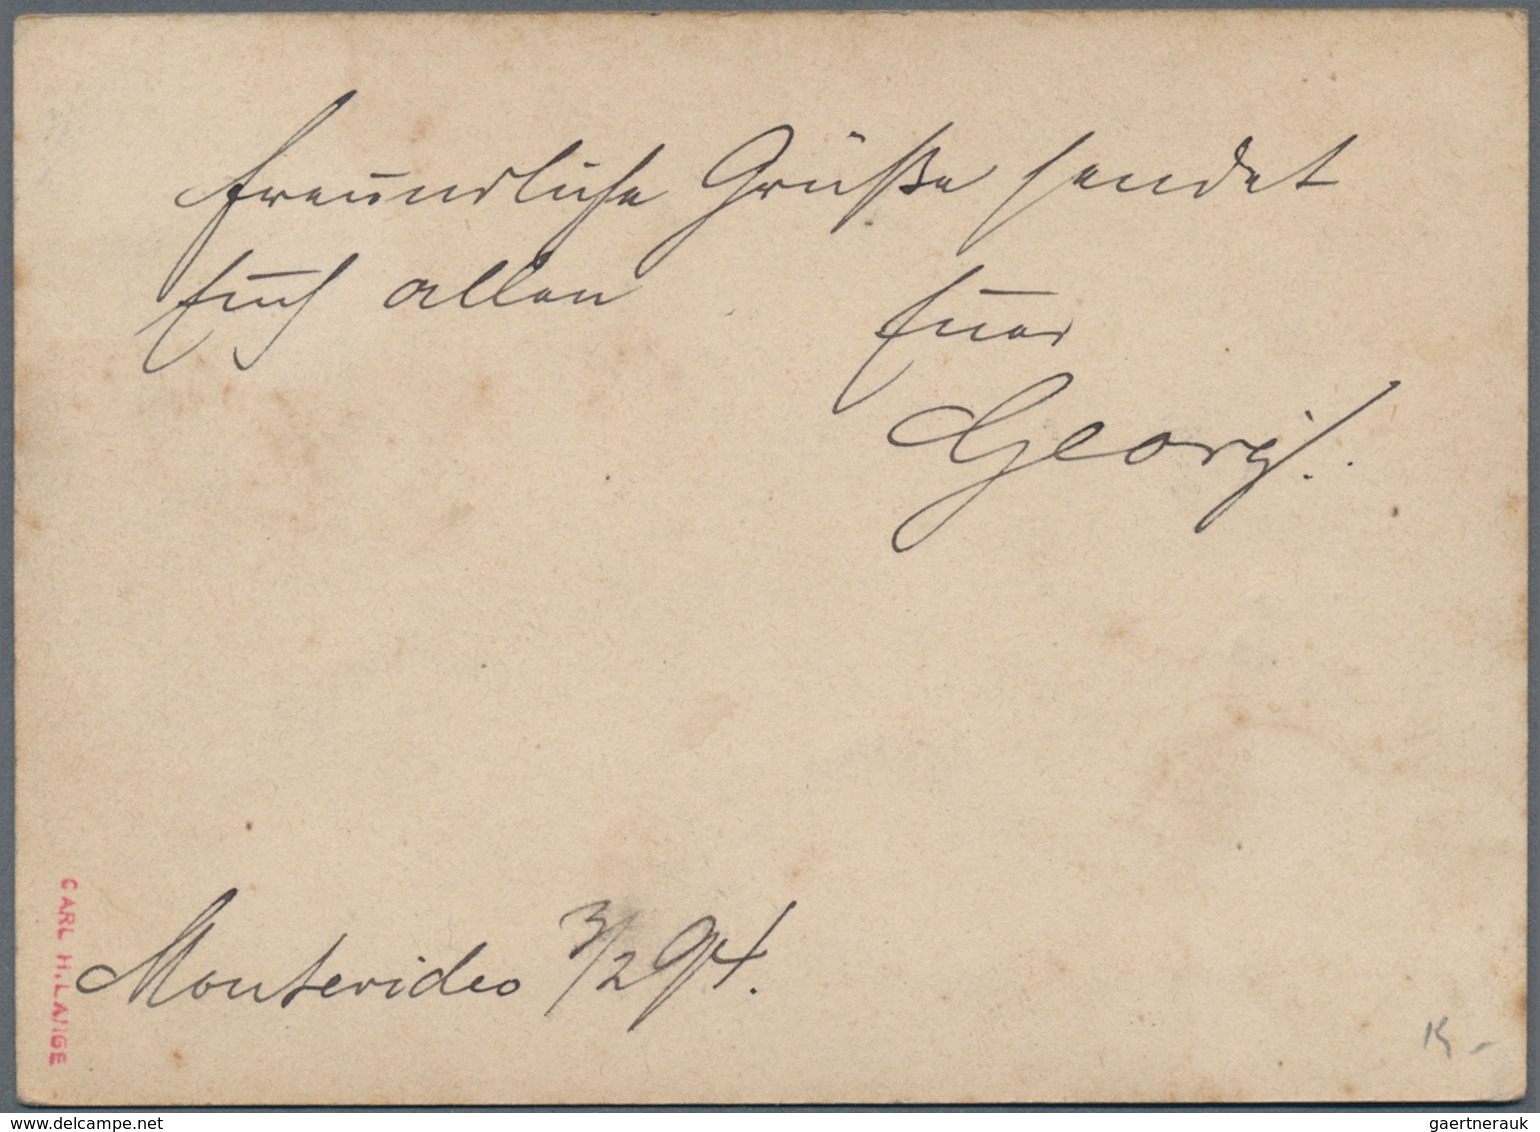 Freundliche Grüße sendet
Euch allen
Euer
Georg.
Montevideo 3/2 94.
CARL H. LANGE
www.delcampe.net
gaertnerauk